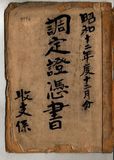 昭和十二年度十二月分
調定證憑書
收支係